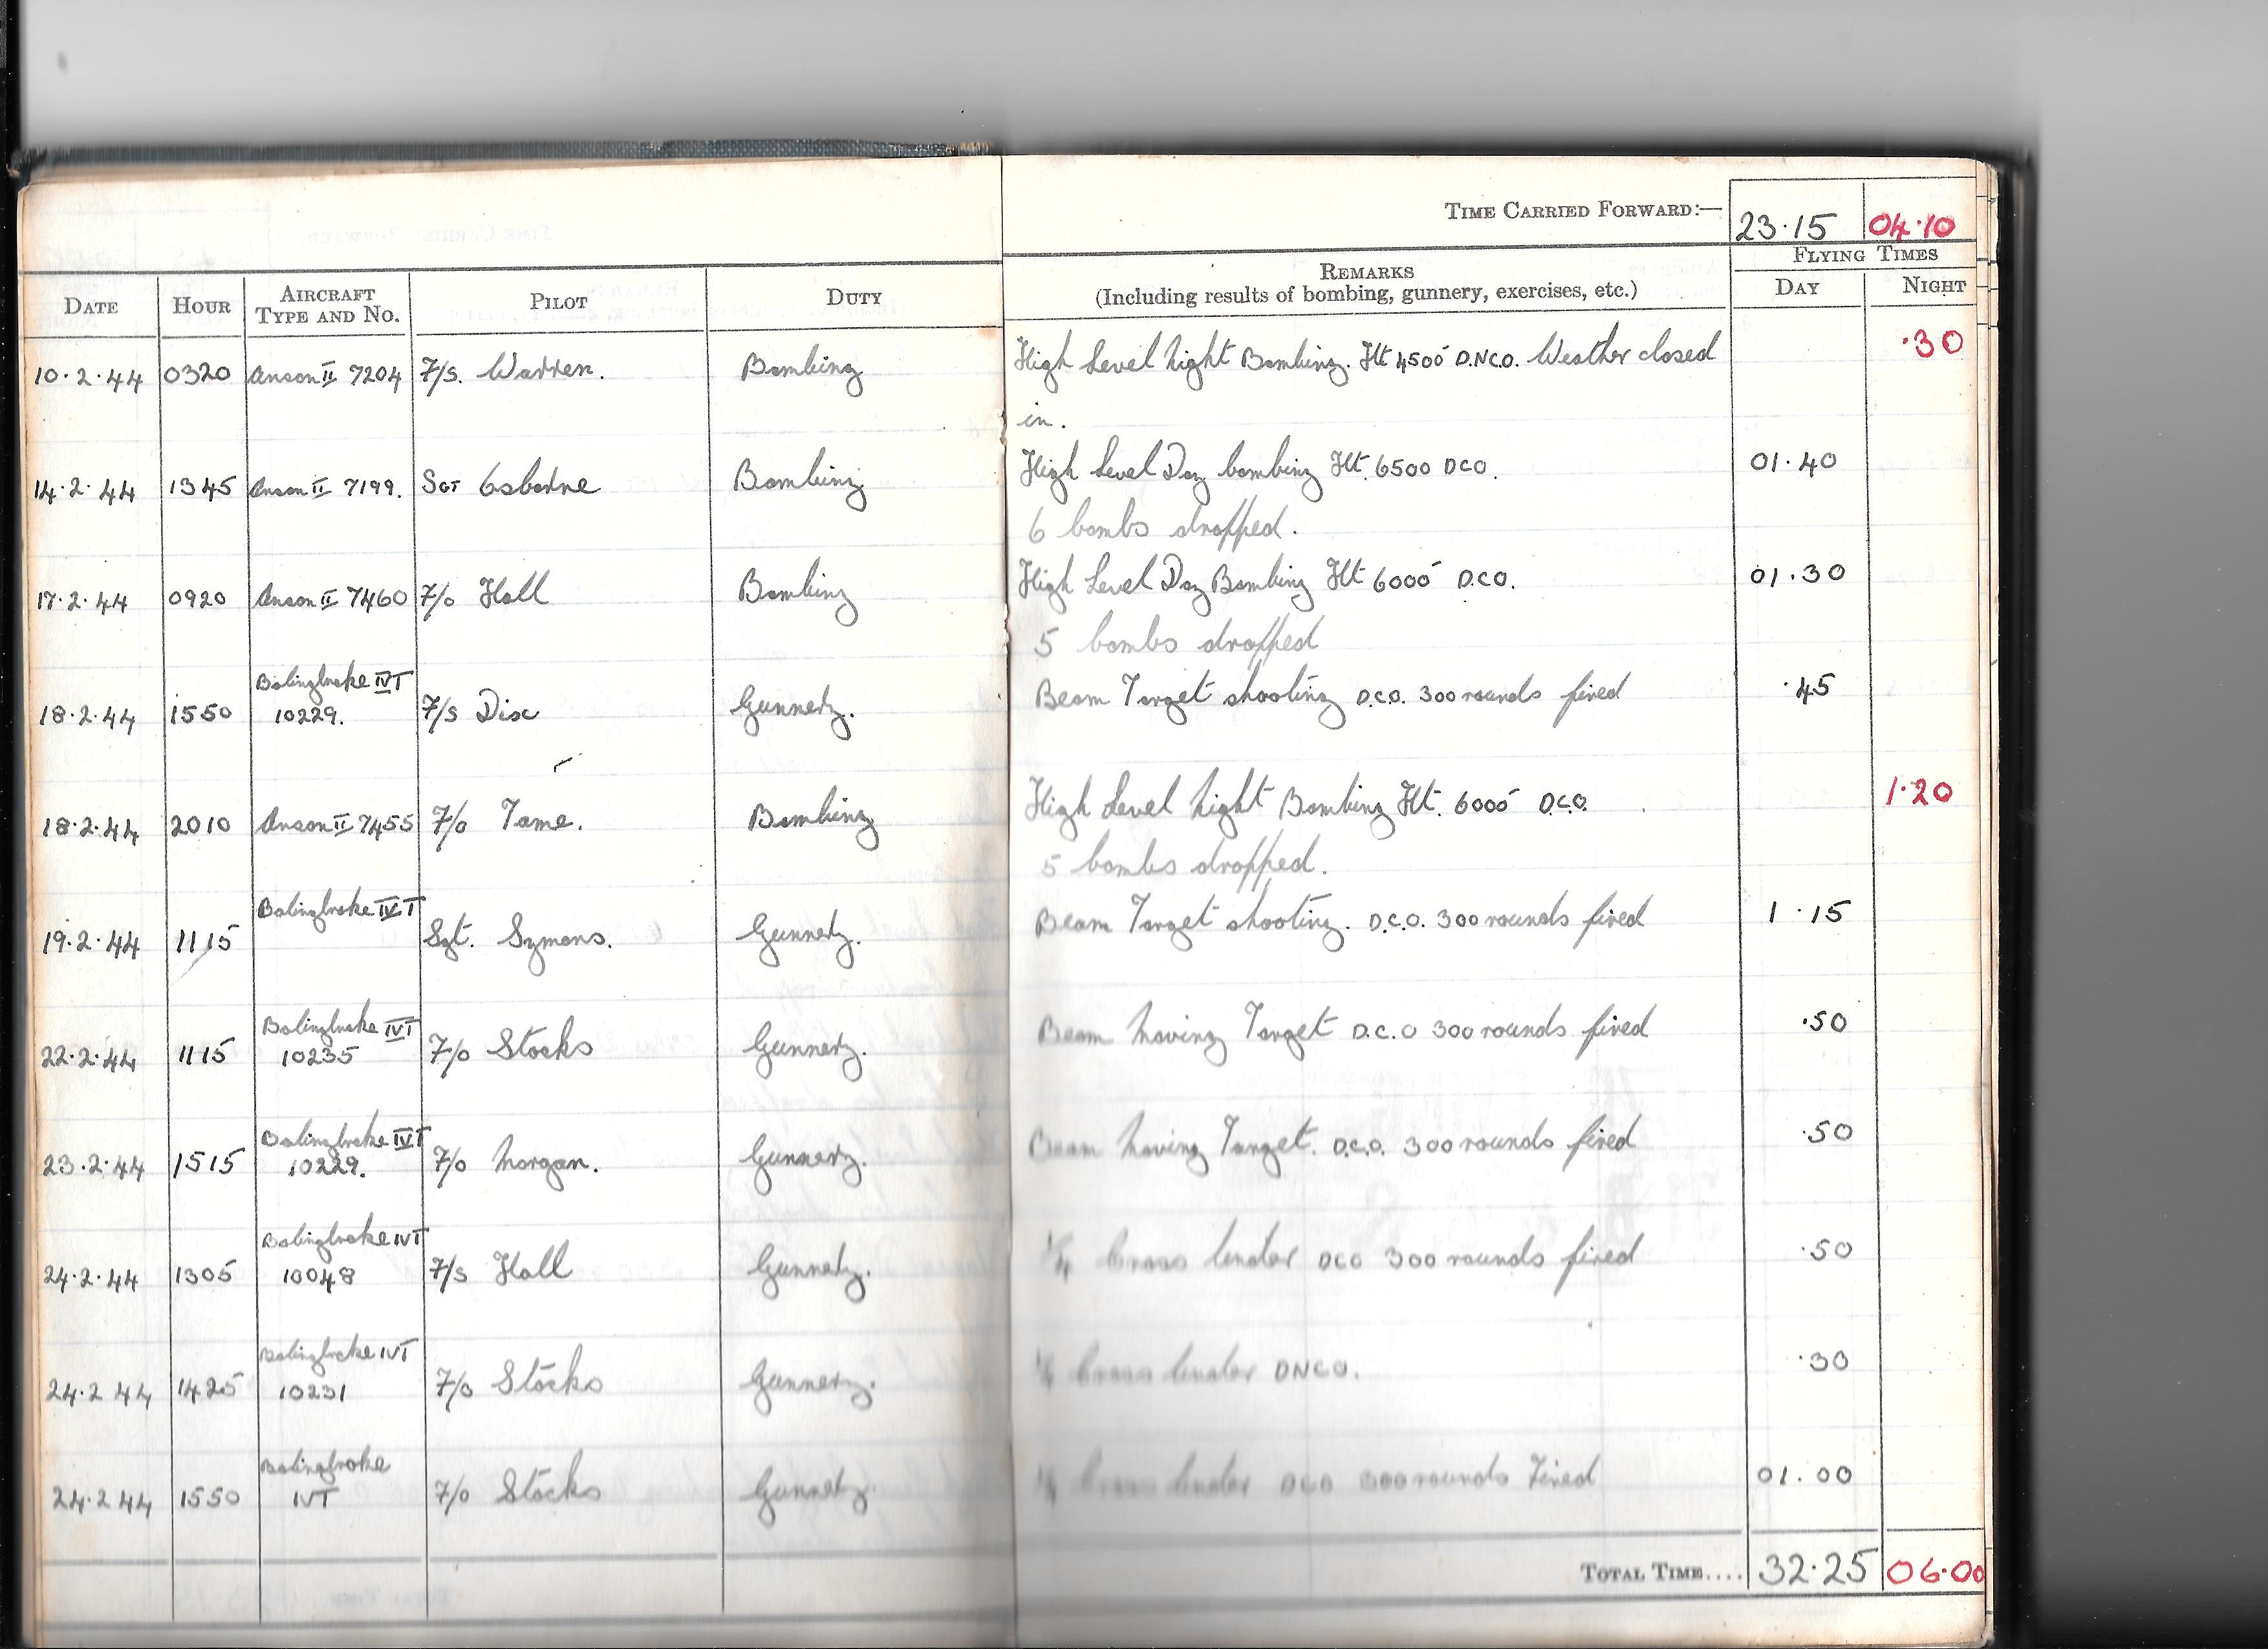 TIME CARRIED FORWARD:— 23·15 04·10
FLYING TIMES
DATE HOUR AIRCRAFT TYPE AND No. PILOT DUTY REMARKS (Including results of bombing, gunnery, exercises, etc.) DAY NIGHT
10·2·44 0320 Anson II 7204 F/S. Warren. Bombing High Level Night Bombing. Ht 4500' D.N.C.O. Weather closed ·30
in.
14·2·44 1345 Anson II 7199. SGT Osborne Bombing High Level Day bombing Ht. 6500 DCO. 01·40
6 bombs dropped.
17·2·44 0920 Anson II 7460 F/O Hall Bombing High Level Day Bombing Ht 6000' D.C.O. 01·30
5 bombs dropped
Bolingbroke IVT
18·2·44 1550 10229. F/S Disc Gunnery. Beam Target shooting D.C.O. 300 rounds fired ·45
18·2·44 2010 Anson II 7455 F/O Tame. Bombing High Level Night Bombing Ht. 6000' D.C.O. 1·20
5 bombs dropped.
Bolingbroke IVT
19·2·44 1115 Sgt. Symons. Gunnery. Beam Target shooting. D.C.O. 300 rounds fired 1·15
Bolingbroke IVT
22·2·44 1115 10235 F/O Stocks Gunnery. Beam Moving Target D.C.O 300 rounds fired ·50
Bolingbroke IVT
23·2·44 1515 10229. F/O Morgan. Gunnery. Beam Moving Target. D.C.O. 300 rounds fired ·50
Bolingbroke IVT
24·2·44 1305 10048 F/S Hall Gunnery. 1/4 Cross Under DCO 300 rounds fired ·50
Bolingbroke IVT
24·2 44 1425 10231 F/O Stocks Gunnery. 1/4 Cross Under DNCO. ·30
Bolingbroke
24·2 44 1550 IVT F/O Stocks Gunnery. 1/4 Cross Under DCO 300 rounds Fired 01.00
TOTAL TIME.... 32·25 06·00